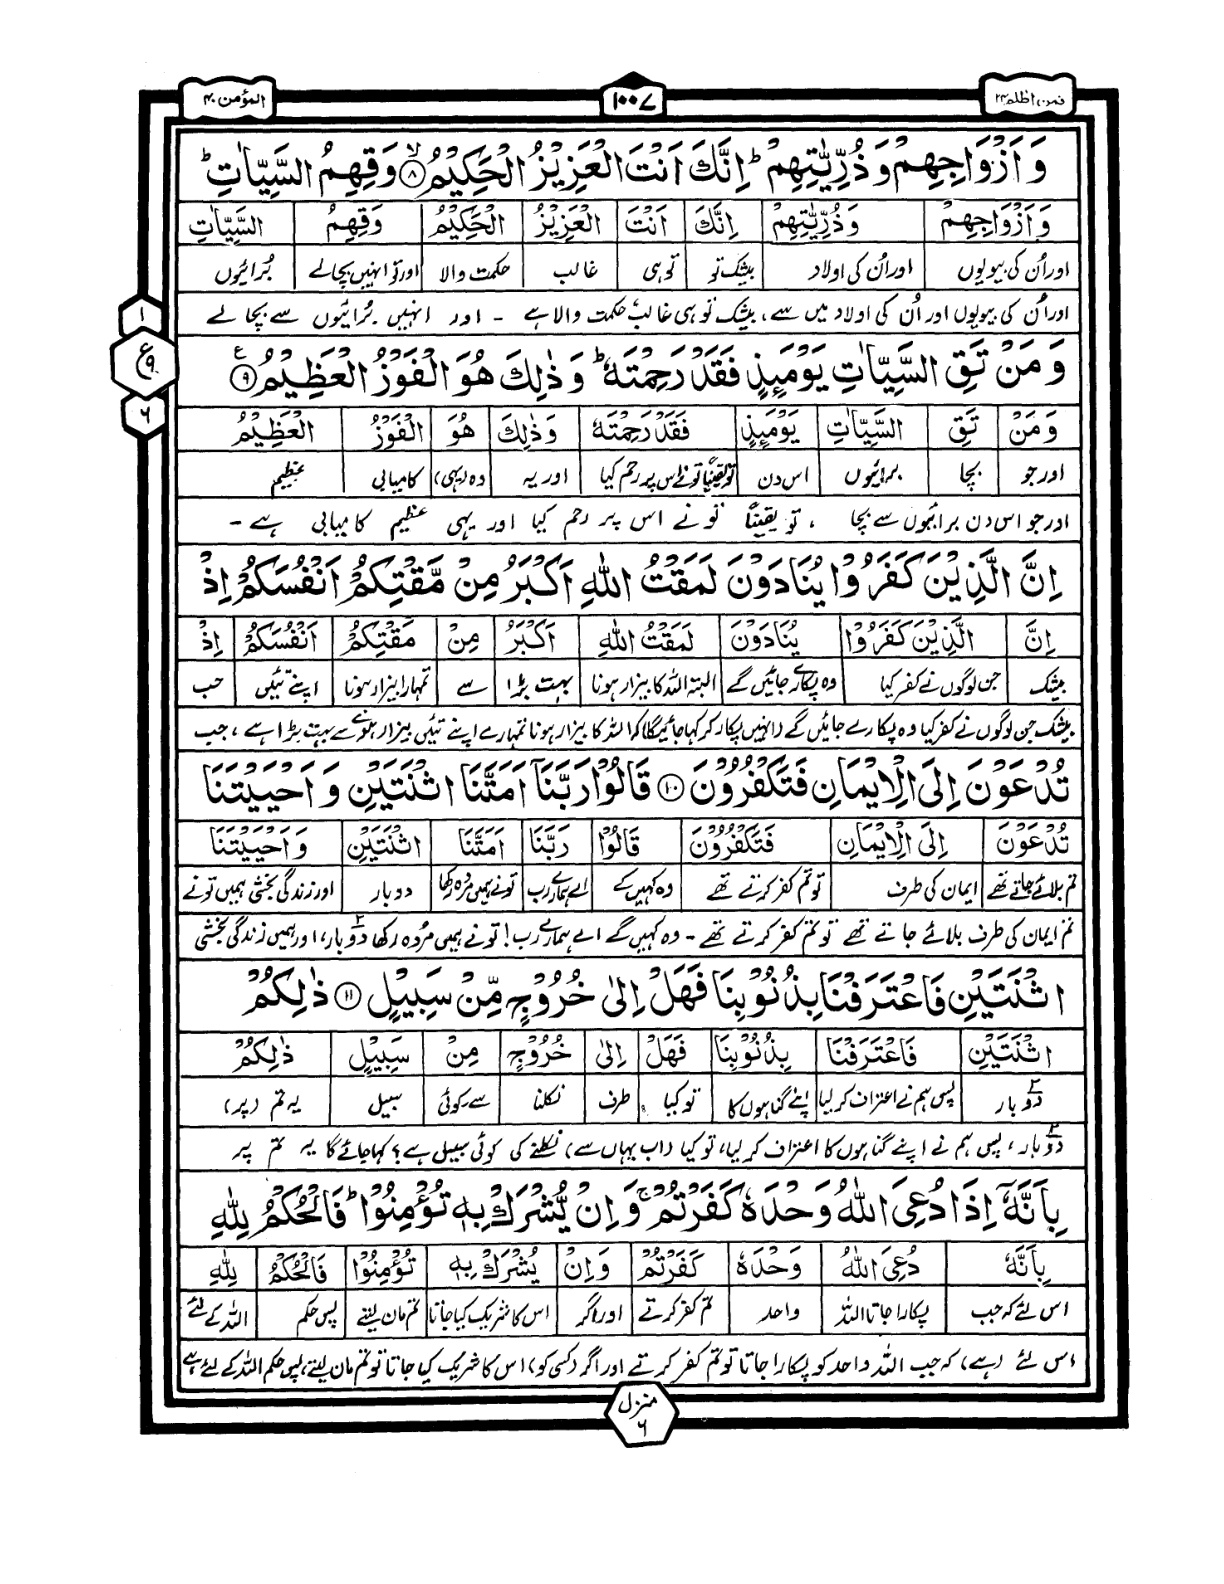 فمن اظلم ۲۴
۱۰۰۷
المؤمن ۴۰
وَ اَزْوَاجِهِمْ وَ ذُرِّيّٰتِهِمْ ؕ اِنَّكَ اَنْتَ الْعَزِيْزُ الْحَكِيْمُ ۙ۸ وَ قِهِمُ السَّيِّاٰتِ ؕ
وَ اَزْوَاجِهِمْ وَ ذُرِّيّٰتِهِمْ اِنَّكَ اَنْتَ الْعَزِيْزُ الْحَكِيْمُ وَ قِهِمُ السَّيِّاٰتِ
اور اُن کی بیویوں اور اُن کی اولاد بیشک تو تو ہی غالب حکمت والا اور تو انہیں بچا لے بُرائیوں
اور اُن کی بیویوں اور اُن کی اولاد میں سے، بیشک تو ہی غالب حکمت والا ہے - اور انہیں بُرائیوں سے بچا لے
۱
ع
۹
۶
وَ مَنْ تَقِ السَّيِّاٰتِ يَوْمَئِذٍ فَقَدْ رَحِمْتَهٗ ؕ وَ ذٰلِكَ هُوَ الْفَوْزُ الْعَظِيْمُ ۹
وَ مَنْ تَقِ السَّيِّاٰتِ يَوْمَئِذٍ فَقَدْ رَحِمْتَهٗ وَ ذٰلِكَ هُوَ الْفَوْزُ الْعَظِيْمُ
اور جو بچا برائیوں اس دن تو یقیناً تونے اس پر رحم کیا اور یہ وہ (یہی) کامیابی عظیم
اور جو اس دن برائیوں سے بچا ، تو یقیناً تو نے اس پر رحم کیا اور یہی عظیم کامیابی ہے -
اِنَّ الَّذِيْنَ كَفَرُوْا يُنَادَوْنَ لَمَقْتُ اللّٰهِ اَكْبَرُ مِنْ مَّقْتِكُمْ اَنْفُسَكُمْ اِذْ
اِنَّ الَّذِيْنَ كَفَرُوْا يُنَادَوْنَ لَمَقْتُ اللّٰهِ اَكْبَرُ مِنْ مَقْتِكُمْ اَنْفُسَكُمْ اِذْ
بیشک جن لوگوں نے کفر کیا وہ پکارے جائیں گے البتہ اللہ کا بیزار ہونا بہت بڑا سے تمہارا بیزار ہونا اپنے تئیں جب
بیشک جن لوگوں نے کفر کیا وہ پکارے جائیں گے (انہیں پکار کر کہا جائیگا) کہ اللہ کا بیزار ہونا تمہارے اپنے تئیں بیزار ہونے سے بہت بڑا ہے ، جب
تُدْعَوْنَ اِلَى الْاِيْمَانِ فَتَكْفُرُوْنَ ۱۰ قَالُوْا رَبَّنَاۤ اَمَتَّنَا اثْنَتَيْنِ وَ اَحْيَيْتَنَا
تُدْعَوْنَ اِلَى الْاِيْمَانِ فَتَكْفُرُوْنَ قَالُوْا رَبَّنَا اَمَتَّنَا اثْنَتَيْنِ وَ اَحْيَيْتَنَا
تم بلائے جاتے تھے ایمان کی طرف تو تم کفر کرتے تھے وہ کہیں گے اے ہمارے رب تونے ہمیں مردہ رکھا دو بار اور زندگی بخشی ہمیں تونے
تم ایمان کی طرف بلائے جاتے تھے تو تم کفر کرتے تھے - وہ کہیں گے اے ہمارے رب! تونے ہمیں مُردہ رکھا دو بار، اور ہمیں زندگی بخشی
اثْنَتَيْنِ فَاعْتَرَفْنَا بِذُنُوْبِنَا فَهَلْ اِلٰى خُرُوْجٍ مِّنْ سَبِيْلٍ ۱۱ ذٰلِكُمْ
اثْنَتَيْنِ فَاعْتَرَفْنَا بِذُنُوْبِنَا فَهَلْ اِلٰى خُرُوْجٍ مِنْ سَبِيْلٍ ذٰلِكُمْ
دو بار پس ہم نے اعتراف کر لیا اپنے گناہوں کا تو کیا طرف نکلنا سے کوئی سبیل یہ تم (پر)
دو بار، پس ہم نے اپنے گناہوں کا اعتراف کر لیا، تو کیا (اب یہاں سے) نکلنے کی کوئی سبیل ہے؟ کہا جائے گا یہ تم پر
بِاَنَّهٗۤ اِذَا دُعِيَ اللّٰهُ وَحْدَهٗ كَفَرْتُمْ ۚ وَ اِنْ يُّشْرَكْ بِهٖ تُؤْمِنُوْا ؕ فَالْحُكْمُ لِلّٰهِ
بِاَنَّهٗ دُعِيَ اللّٰهُ وَحْدَهٗ كَفَرْتُمْ وَ اِنْ يُشْرَكْ بِهٖ تُؤْمِنُوْا فَالْحُكْمُ لِلّٰهِ
اس لئے کہ جب پکارا جاتا اللہ واحد تم کفر کرتے اور اگر اس کا شریک کیا جاتا تم مان لیتے پس حکم اللہ کے لئے
اس لئے (ہے) کہ جب اللہ واحد کو پکارا جاتا تو تم کفر کرتے اور اگر (کسی کو) اس کا شریک کیا جاتا تو تم مان لیتے، پس حکم اللہ کے لئے ہے
منزل
۶